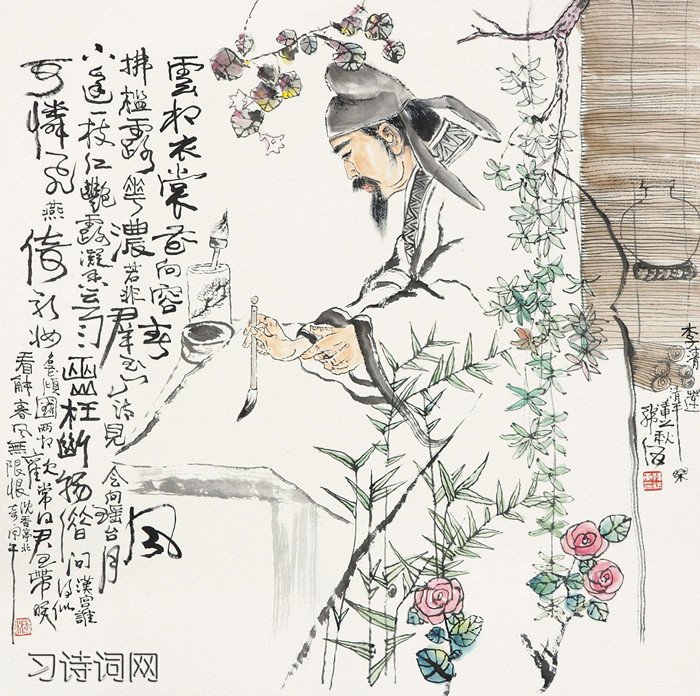 雲想衣裳花想容春風
拂檻露華濃若非群玉山頭見會向瑤台月
下逢一枝紅艷露凝香雲雨巫山枉斷腸借問漢宮誰得似
可憐飛燕倚新妝名花傾國兩相歡常得君王帶笑
看解春風無限恨沈香亭北
李青蓮清平
习诗词网